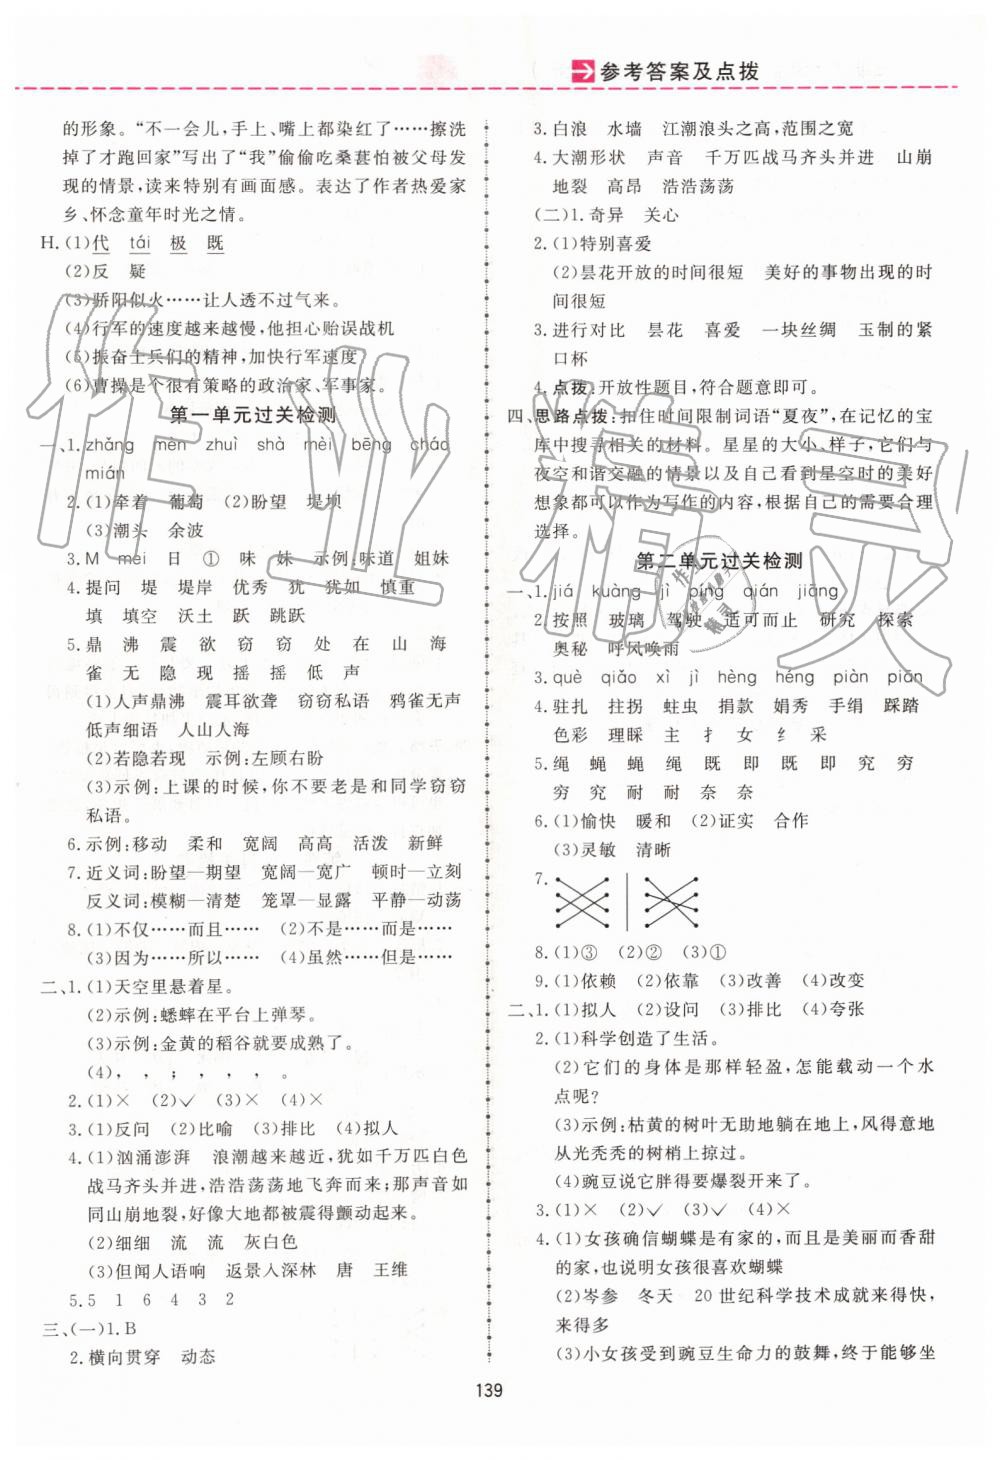 参考答案及点拨
的形象。“不一会儿,手上、嘴上都染红了……擦洗
掉了才跑回家”写出了“我”偷偷吃桑葚怕被父母发
现的情景,读来特别有画面感。表达了作者热爱家
乡、怀念童年时光之情。
H. (1)代 tái 极 既
(2)反 疑
(3)骄阳似火……让人透不过气来。
(4)行军的速度越来越慢,他担心贻误战机
(5)振奋士兵们的精神,加快行军速度
(6)曹操是个很有策略的政治家、军事家。
第一单元过关检测
一、1. zhǎng mèn zhuì shà mèi bēng cháo
mián
2. (1)牵着 葡萄 (2)盼望 堤坝
(3)潮头 余波
3. M mèi 日 ① 味 妹 示例:味道 姐妹
4. 提问 堤 堤岸 优秀 犹 犹如 慎重
填 填空 沃土 跃 跳跃
5. 鼎 沸 震 欲 窃 窃 处 在 山 海
雀 无 隐 现 摇 摇 低 声
(1)人声鼎沸 震耳欲聋 窃窃私语 鸦雀无声
低声细语 人山人海
(2)若隐若现 示例:左顾右盼
(3)示例:上课的时候,你不要老是和同学窃窃
私语。
6. 示例:移动 柔和 宽阔 高高 活泼 新鲜
7. 近义词:盼望—期望 宽阔—宽广 顿时—立刻
反义词:模糊—清楚 笼罩—显露 平静—动荡
8. (1)不仅……而且…… (2)不是……而是……
(3)因为……所以…… (4)虽然……但是……
二、1. (1)天空里悬着星。
(2)示例:蟋蟀在平台上弹琴。
(3)示例:金黄的稻谷就要成熟了。
(4), , ; , , , 。
2. (1)× (2)✓ (3)× (4)×
3. (1)反问 (2)比喻 (3)排比 (4)拟人
4. (1)汹涌澎湃 浪潮越来越近,犹如千万匹白色
战马齐头并进,浩浩荡荡地飞奔而来;那声音如
同山崩地裂,好像大地都被震得颤动起来。
(2)细细 流 流 灰白色
(3)但闻人语响 返景入深林 唐 王维
5. 5 1 6 4 3 2
三、(一)1. B
2. 横向贯穿 动态
3. 白浪 水墙 江潮浪头之高,范围之宽
4. 大潮形状 声音 千万匹战马齐头并进 山崩
地裂 高昂 浩浩荡荡
(二)1. 奇异 关心
2. (1)特别喜爱
(2)昙花开放的时间很短 美好的事物出现的时
间很短
3. 进行对比 昙花 喜爱 一块丝绸 玉制的紧
口杯
4. 点拨:开放性题目,符合题意即可。
四、思路点拨:扣住时间限制词语“夏夜”,在记忆的宝
库中搜寻相关的材料。星星的大小、样子,它们与
夜空和谐交融的情景以及自己看到星空时的美好
想象都可以作为写作的内容,根据自己的需要合理
选择。
第二单元过关检测
一、1. jiá kuàng jì píng qián jiāng
2. 按照 玻璃 驾驶 适可而止 研究 探索
奥秘 呼风唤雨
3. què qiǎo xì jì hèng héng piàn piān
4. 驻扎 拄拐 蛀虫 捐款 娟秀 手绢 踩踏
色彩 理睬 主 扌 女 纟 采
5. 绳 蝇 蝇 绳 既 即 既 即 究 穷
穷 究 耐 耐 奈 奈
6. (1)愉快 暖和 (2)证实 合作
(3)灵敏 清晰
7.
8. (1)③ (2)② (3)①
9. (1)依赖 (2)依靠 (3)改善 (4)改变
二、1. (1)拟人 (2)设问 (3)排比 (4)夸张
2. (1)科学创造了生活。
(2)它们的身体是那样轻盈,怎能载动一个水
点呢?
(3)示例:枯黄的树叶无助地躺在地上,风得意地
从光秃秃的树梢上掠过。
(4)豌豆说它胖得要爆裂开来了。
3. (1)× (2)✓ (3)✓ (4)×
4. (1)女孩确信蝴蝶是有家的,而且是美丽而香甜
的家,也说明女孩很喜欢蝴蝶
(2)岑参 冬天 20世纪科学技术成就来得快,
来得多
(3)小女孩受到豌豆生命力的鼓舞,终于能够坐
139
作业精灵